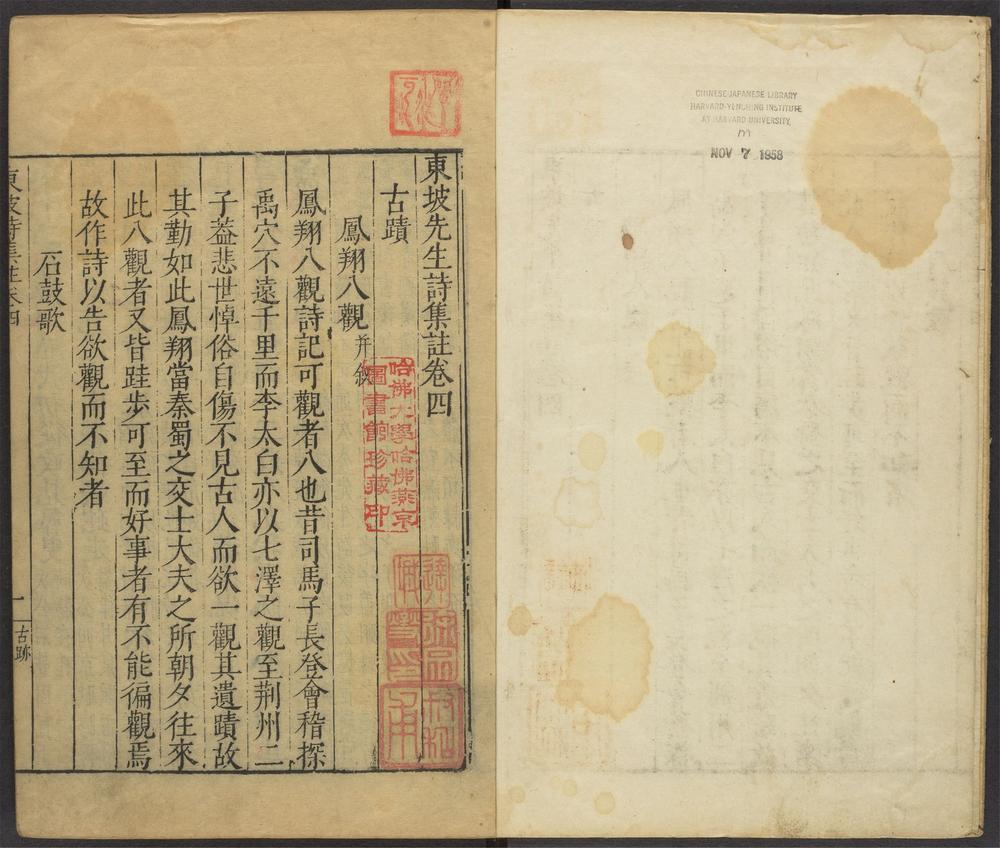 CHINESE-JAPANESE LIBRARY
HARVARD-YENCHING INSTITUTE
AT HARVARD UNIVERSITY
NOV 7 1958
東坡先生詩集註卷四
古蹟
鳳翔八觀并敘
鳳翔八觀詩記可觀者八也昔司馬子長登會稽探
禹穴不遠千里而李太白亦以七澤之觀至荆州二
子葢悲世悼俗自傷不見古人而欲一觀其遺蹟故
其勤如此鳳翔當秦蜀之交士大夫之所朝夕往來
此八觀者又皆跬步可至而好事者有不能徧觀焉
故作詩以告欲觀而不知者
石鼓歌
東坡詩集註卷四
一
古跡
哈佛大學哈佛燕京
圖書館珍藏印